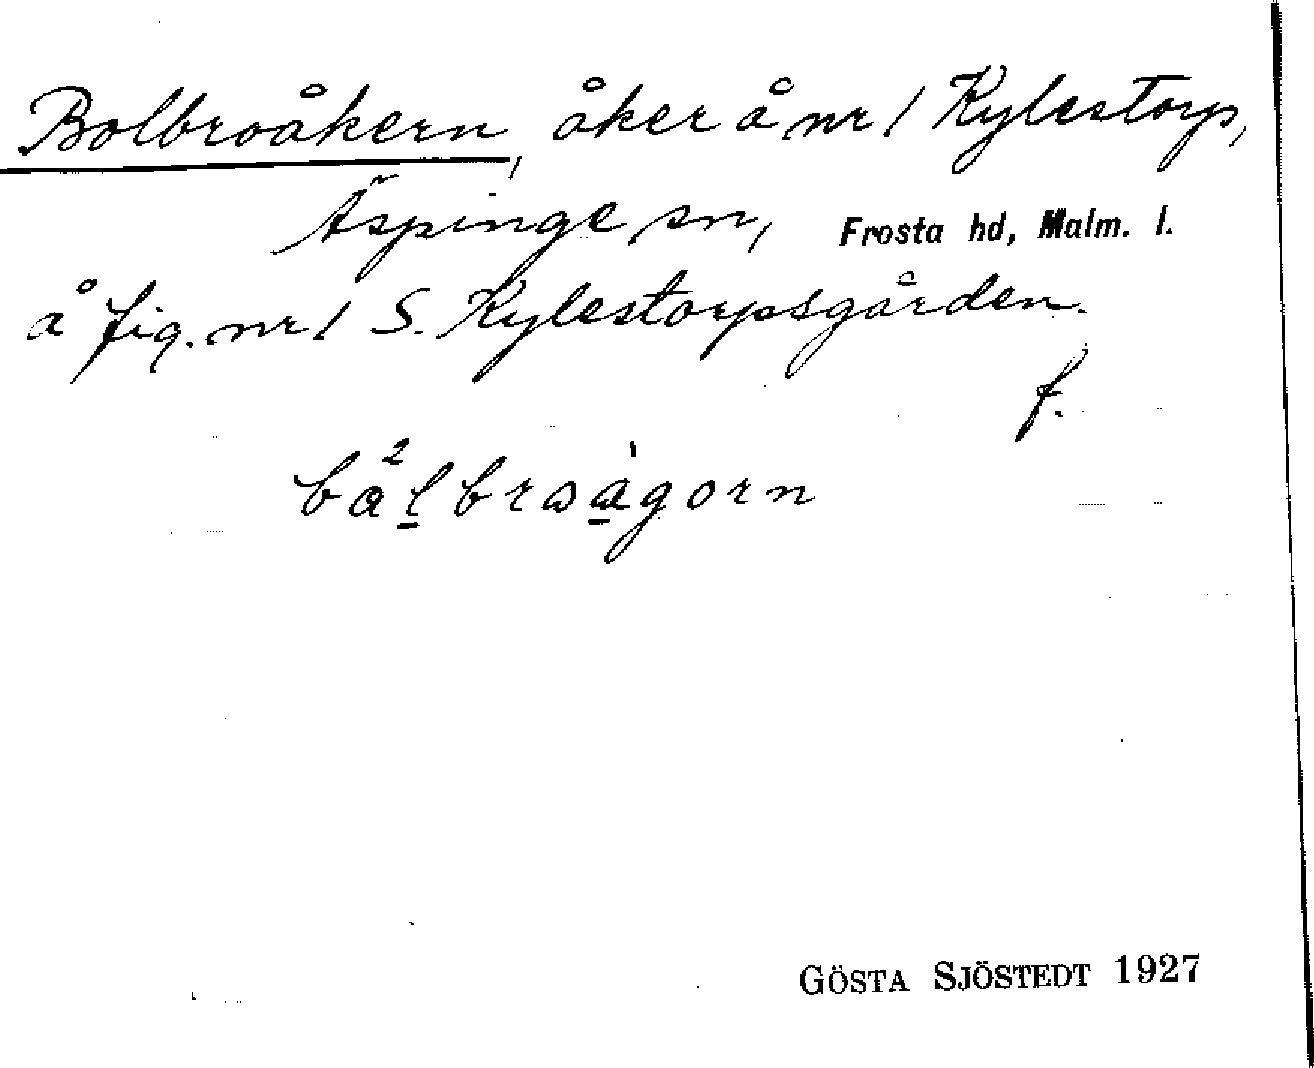 Bolbroåkern, åker å nr 1 Kylestorp,
Äspinge sn, Frosta hd, Malm. l.
å fig. nr 1 S. Kylestorpsgården.
f.
GÖSTA SJÖSTEDT 1927